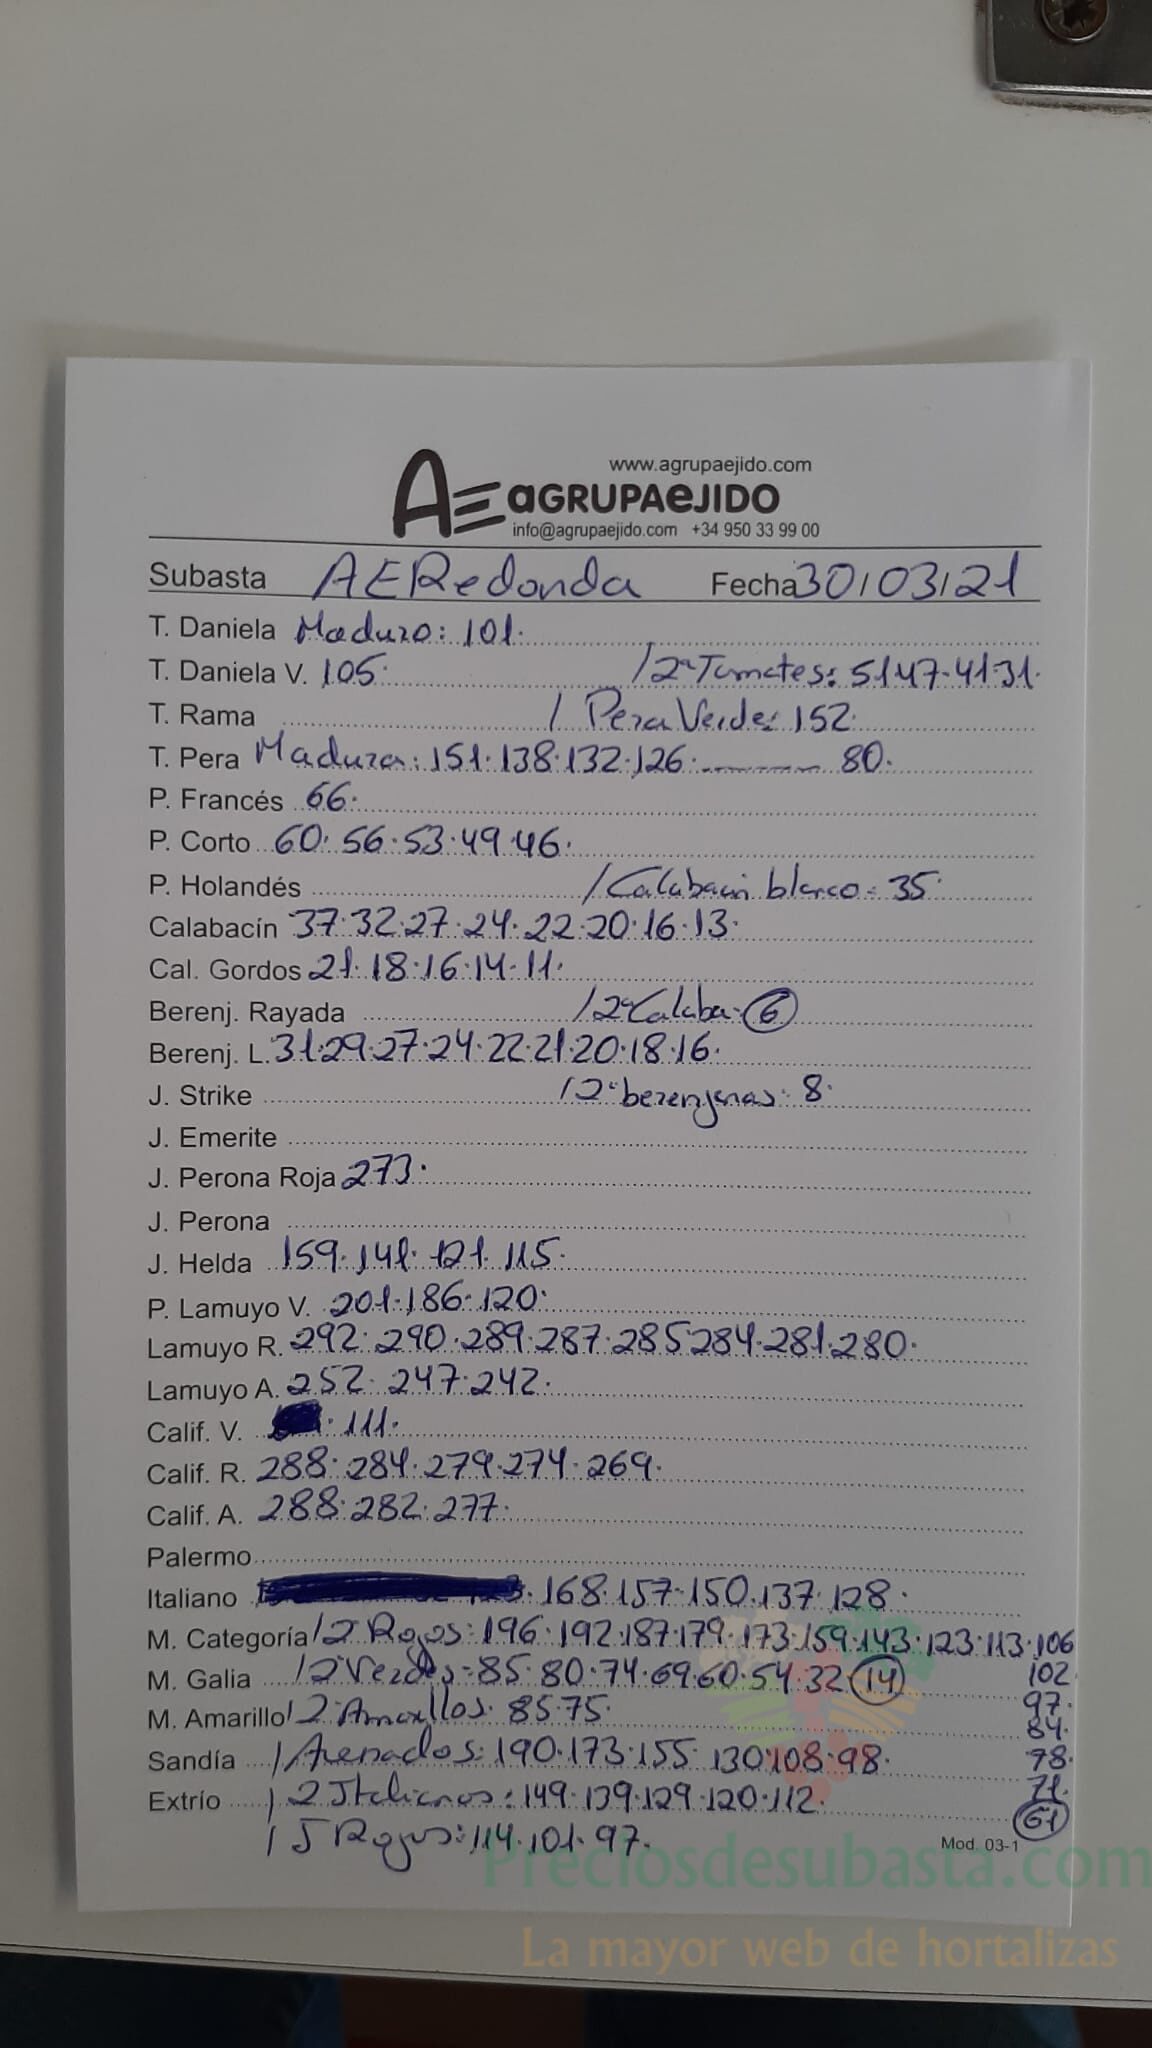 www.agrupaejido.com
AE aGRUPAeJIDO
info@agrupaejido.com +34 950 33 99 00
Subasta AERedonda Fecha 30/03/21
T. Daniela Maduro: 101.
T. Daniela V. 105. /2ª Tomates: 51.47.41.31.
T. Rama / Pera Verde: 152.
T. Pera Madura: 151.138.132.126. ------- 80.
P. Francés 66.
P. Corto 60. 56.53.49.46.
P. Holandés /Calabacin blanco = 35.
Calabacín 37.32.27.24.22.20.16.13.
Cal. Gordos 21.18.16.14.11.
Berenj. Rayada /2ª Calaba: 6
Berenj. L. 31.29.27.24.22.21.20.18.16.
J. Strike /2ª berenjenas: 8.
J. Emerite
J. Perona Roja 273.
J. Perona
J. Helda 159.141.121.115.
P. Lamuyo V. 201.186.120.
Lamuyo R. 292.290.289.287.285.284.281.280.
Lamuyo A. 252.247.242.
Calif. V. . 111.
Calif. R. 288.284.279.274.269.
Calif. A. 288.282.277.
Palermo
Italiano . 168.157.150.137.128.
M. Categoría /2 Rojos: 196.192.187.179.173.159.143.123.113.106
M. Galia /2 Verdes = 85.80.74.69.60.54.32. 14 102
97.
M. Amarillo /2 Amarillos: 85.75. 84.
Sandía / Arenados: 190.173.155.130.108.98. 78.
71.
Extrío / 2 Italianos: 149.139.129.120.112. 61
/ J Rojos: 114.101.97. Mod. 03-1
Preciosdesubasta.com
La mayor web de hortalizas